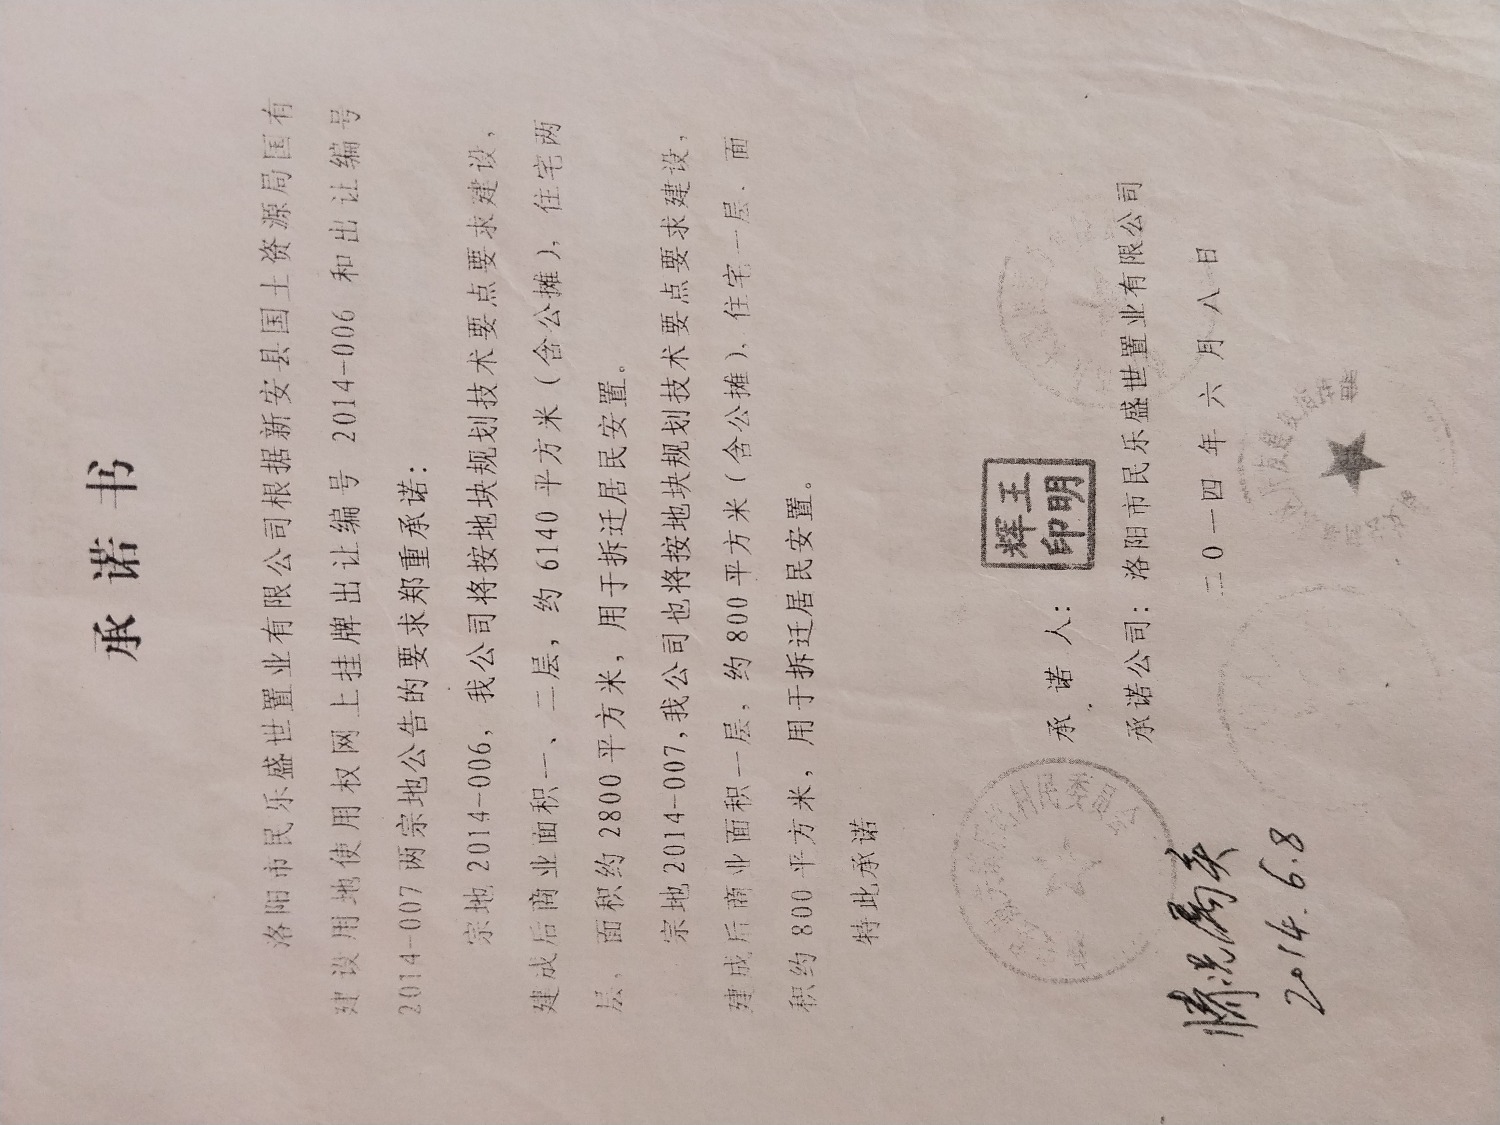 承诺书
洛阳市民乐盛世置业有限公司根据新安县国土资源局国有
建设用地使用权网上挂牌出让编号 2014-006 和出让编号
2014-007 两宗地公告的要求郑重承诺：
宗地2014-006，我公司将按地块规划技术要点要求建设，
建成后商业面积一、二层，约 6140 平方米（含公摊），住宅两
层，面积约 2800 平方米，用于拆迁居民安置。
宗地2014-007,我公司也将按地块规划技术要点要求建设，
建成后商业面积一层，约 800 平方米（含公摊）、住宅一层、面
积约 800 平方米，用于拆迁居民安置。
特此承诺
承 诺 人：
王明辉印
承诺公司：洛阳市民乐盛世置业有限公司
二0一四 年 六 月 八 日
情况属实
2014.6.8